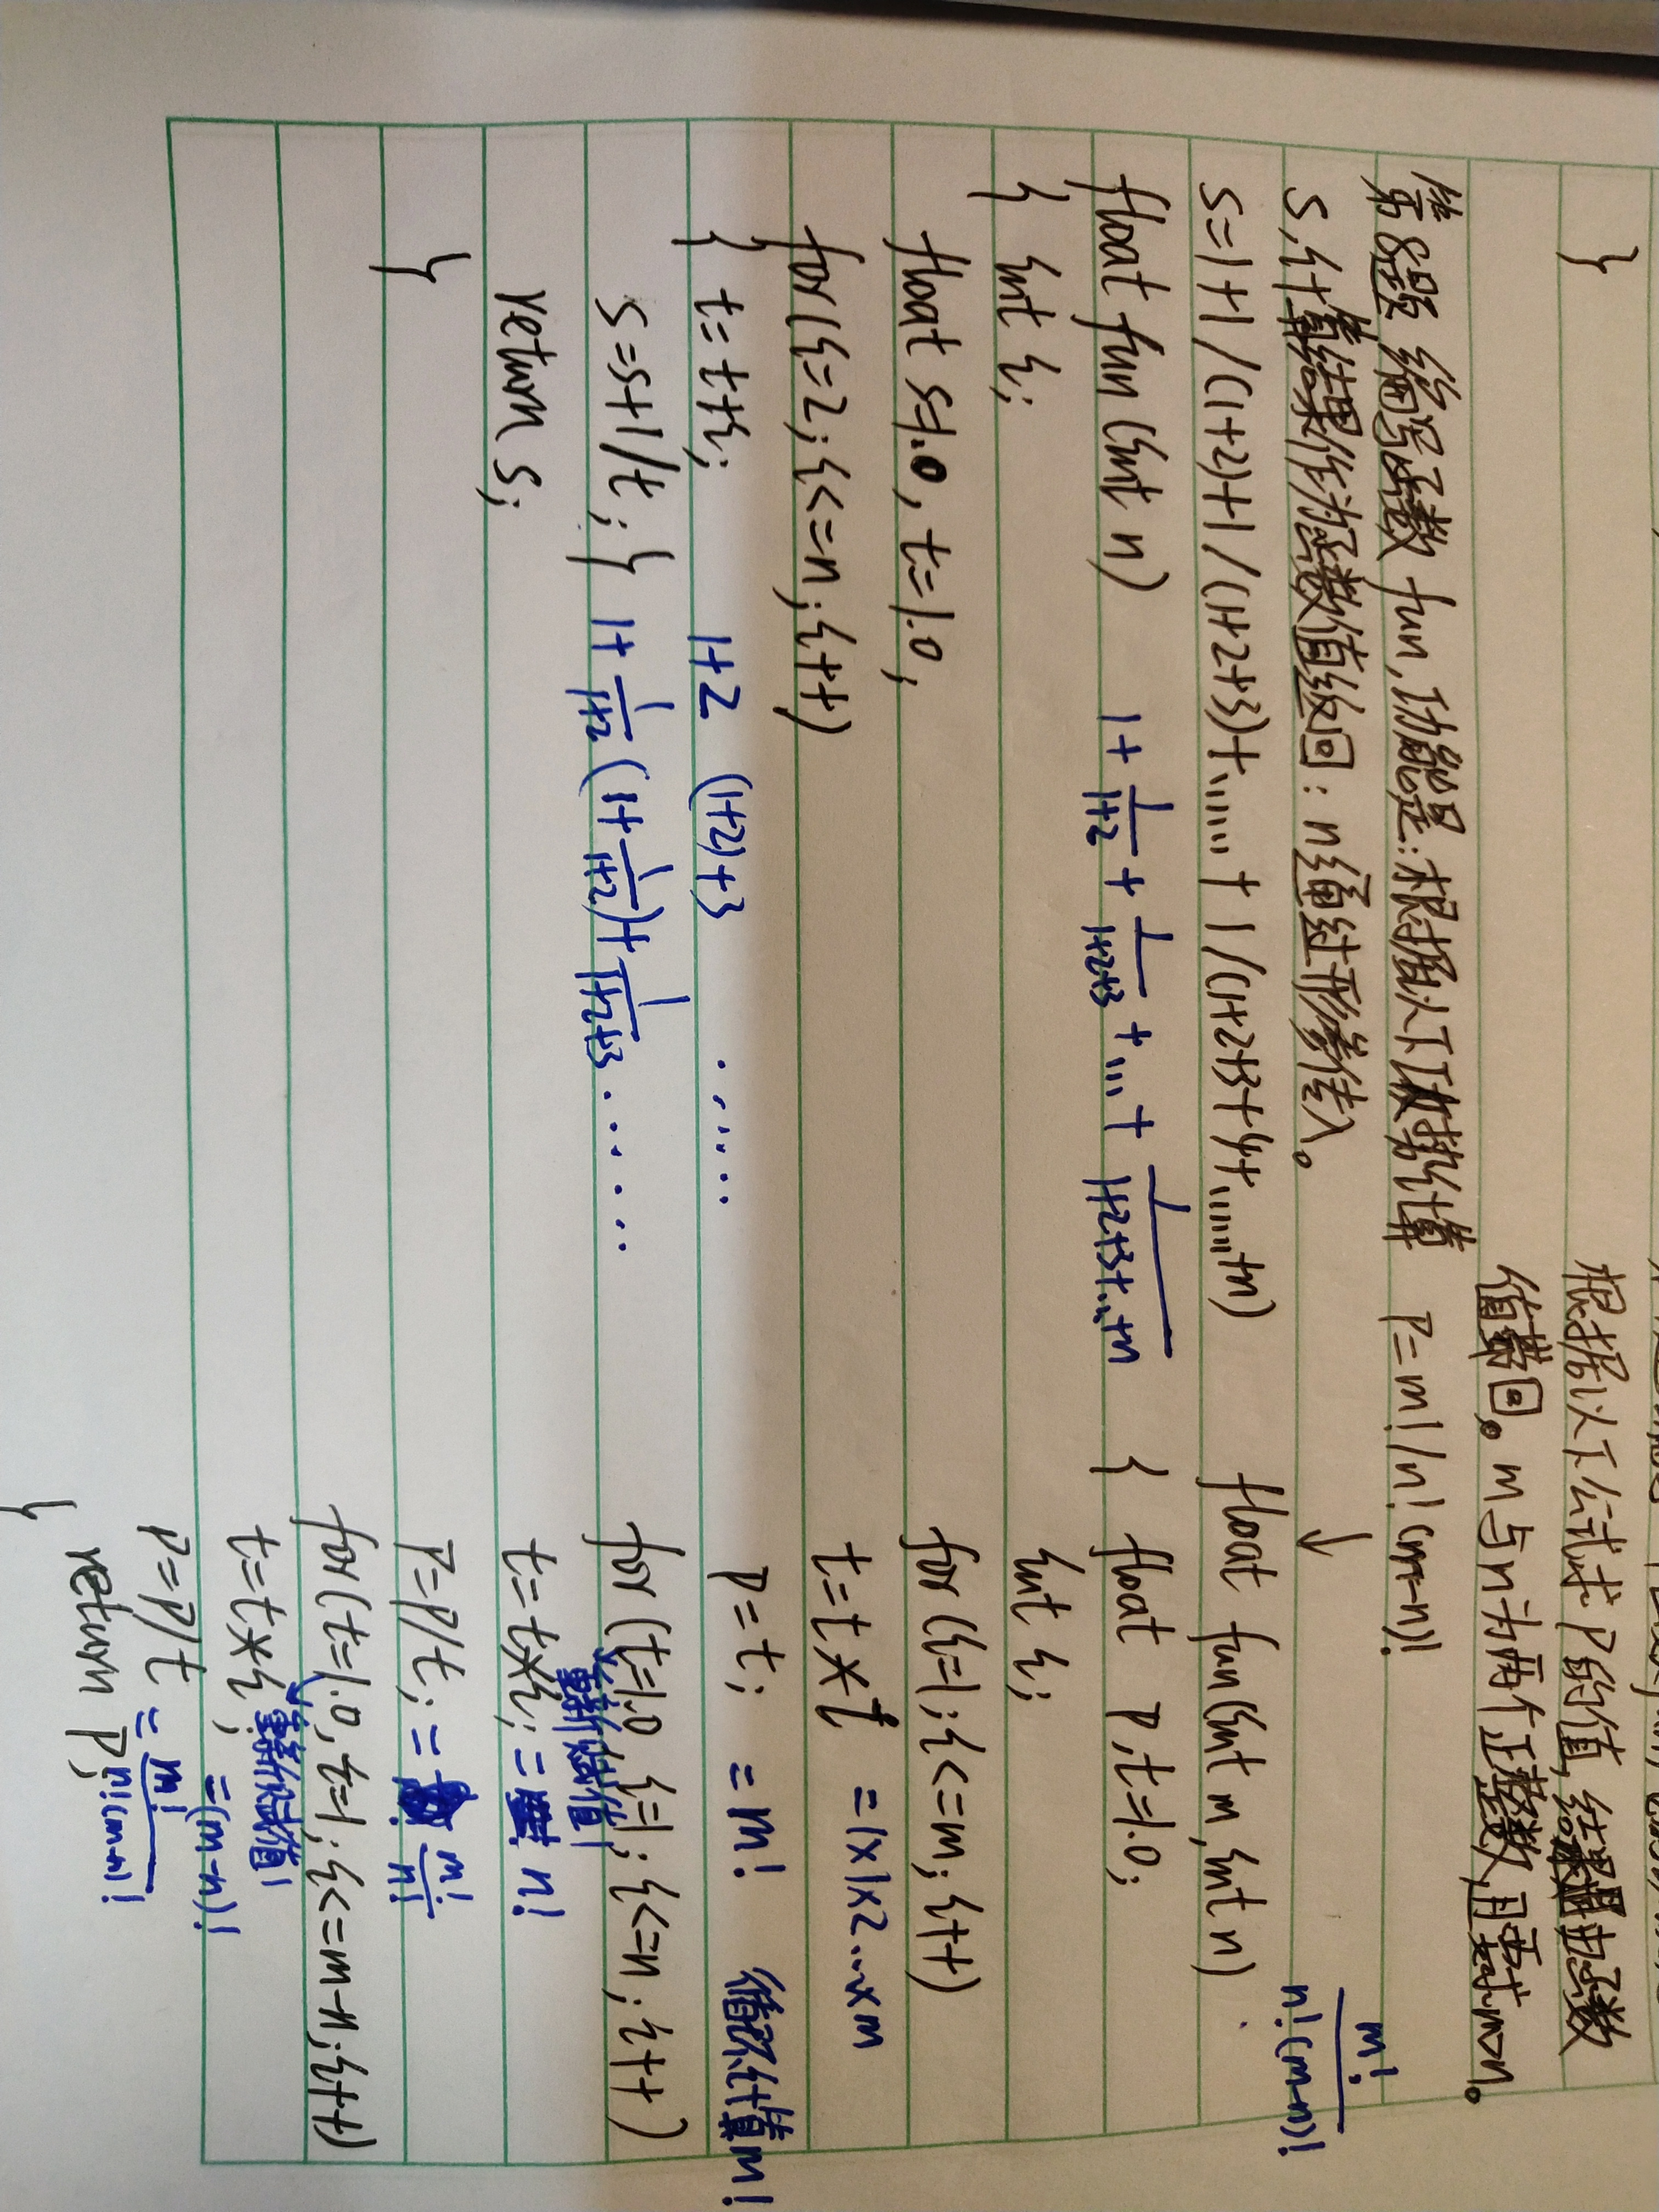 }
第8题 编写函数 fun,功能是:根据以下公式计算
S,计算结果作为函数值返回:n通过形参传入。
S=1+1/(1+2)+1/(1+2+3)+……+1/(1+2+3+4+……+n)
float fun(int n)
1+ 1/(1+2) + 1/(1+2+3) +…+ 1/(1+2+3+…+n)
{ int i;
float s=1.0, t=1.0;
for(i=2;i<=n;i++)
{ t=t+i; 1+2 (1+2)+3 ……
s=s+1/t;} 1+ 1/(1+2) (1+ 1/(1+2))+ 1/(1+2+3) ……
return s;
}
根据以下公式求P的值,结果由函数
值带回。m与n为两个正整数,且要求m>n。
P=m!/n!(m-n)!
↓
m!/n!(m-n)!
float fun(int m,int n)
{ float P,t=1.0;
int i;
for(i=1;i<=m;i++)
t=t*i =1×1×2…×m
P=t; =m! 循环计算m!
for(t=1.0,i=1;i<=n;i++)
重新赋值1
t=t*i; = n!
P=P/t; = m!/n!
for(t=1.0,i=1;i<=m-n;i++)
重新赋值1
t=t*i; =(m-n)!
P=P/t = m!/n!(m-n)!
return P;
}